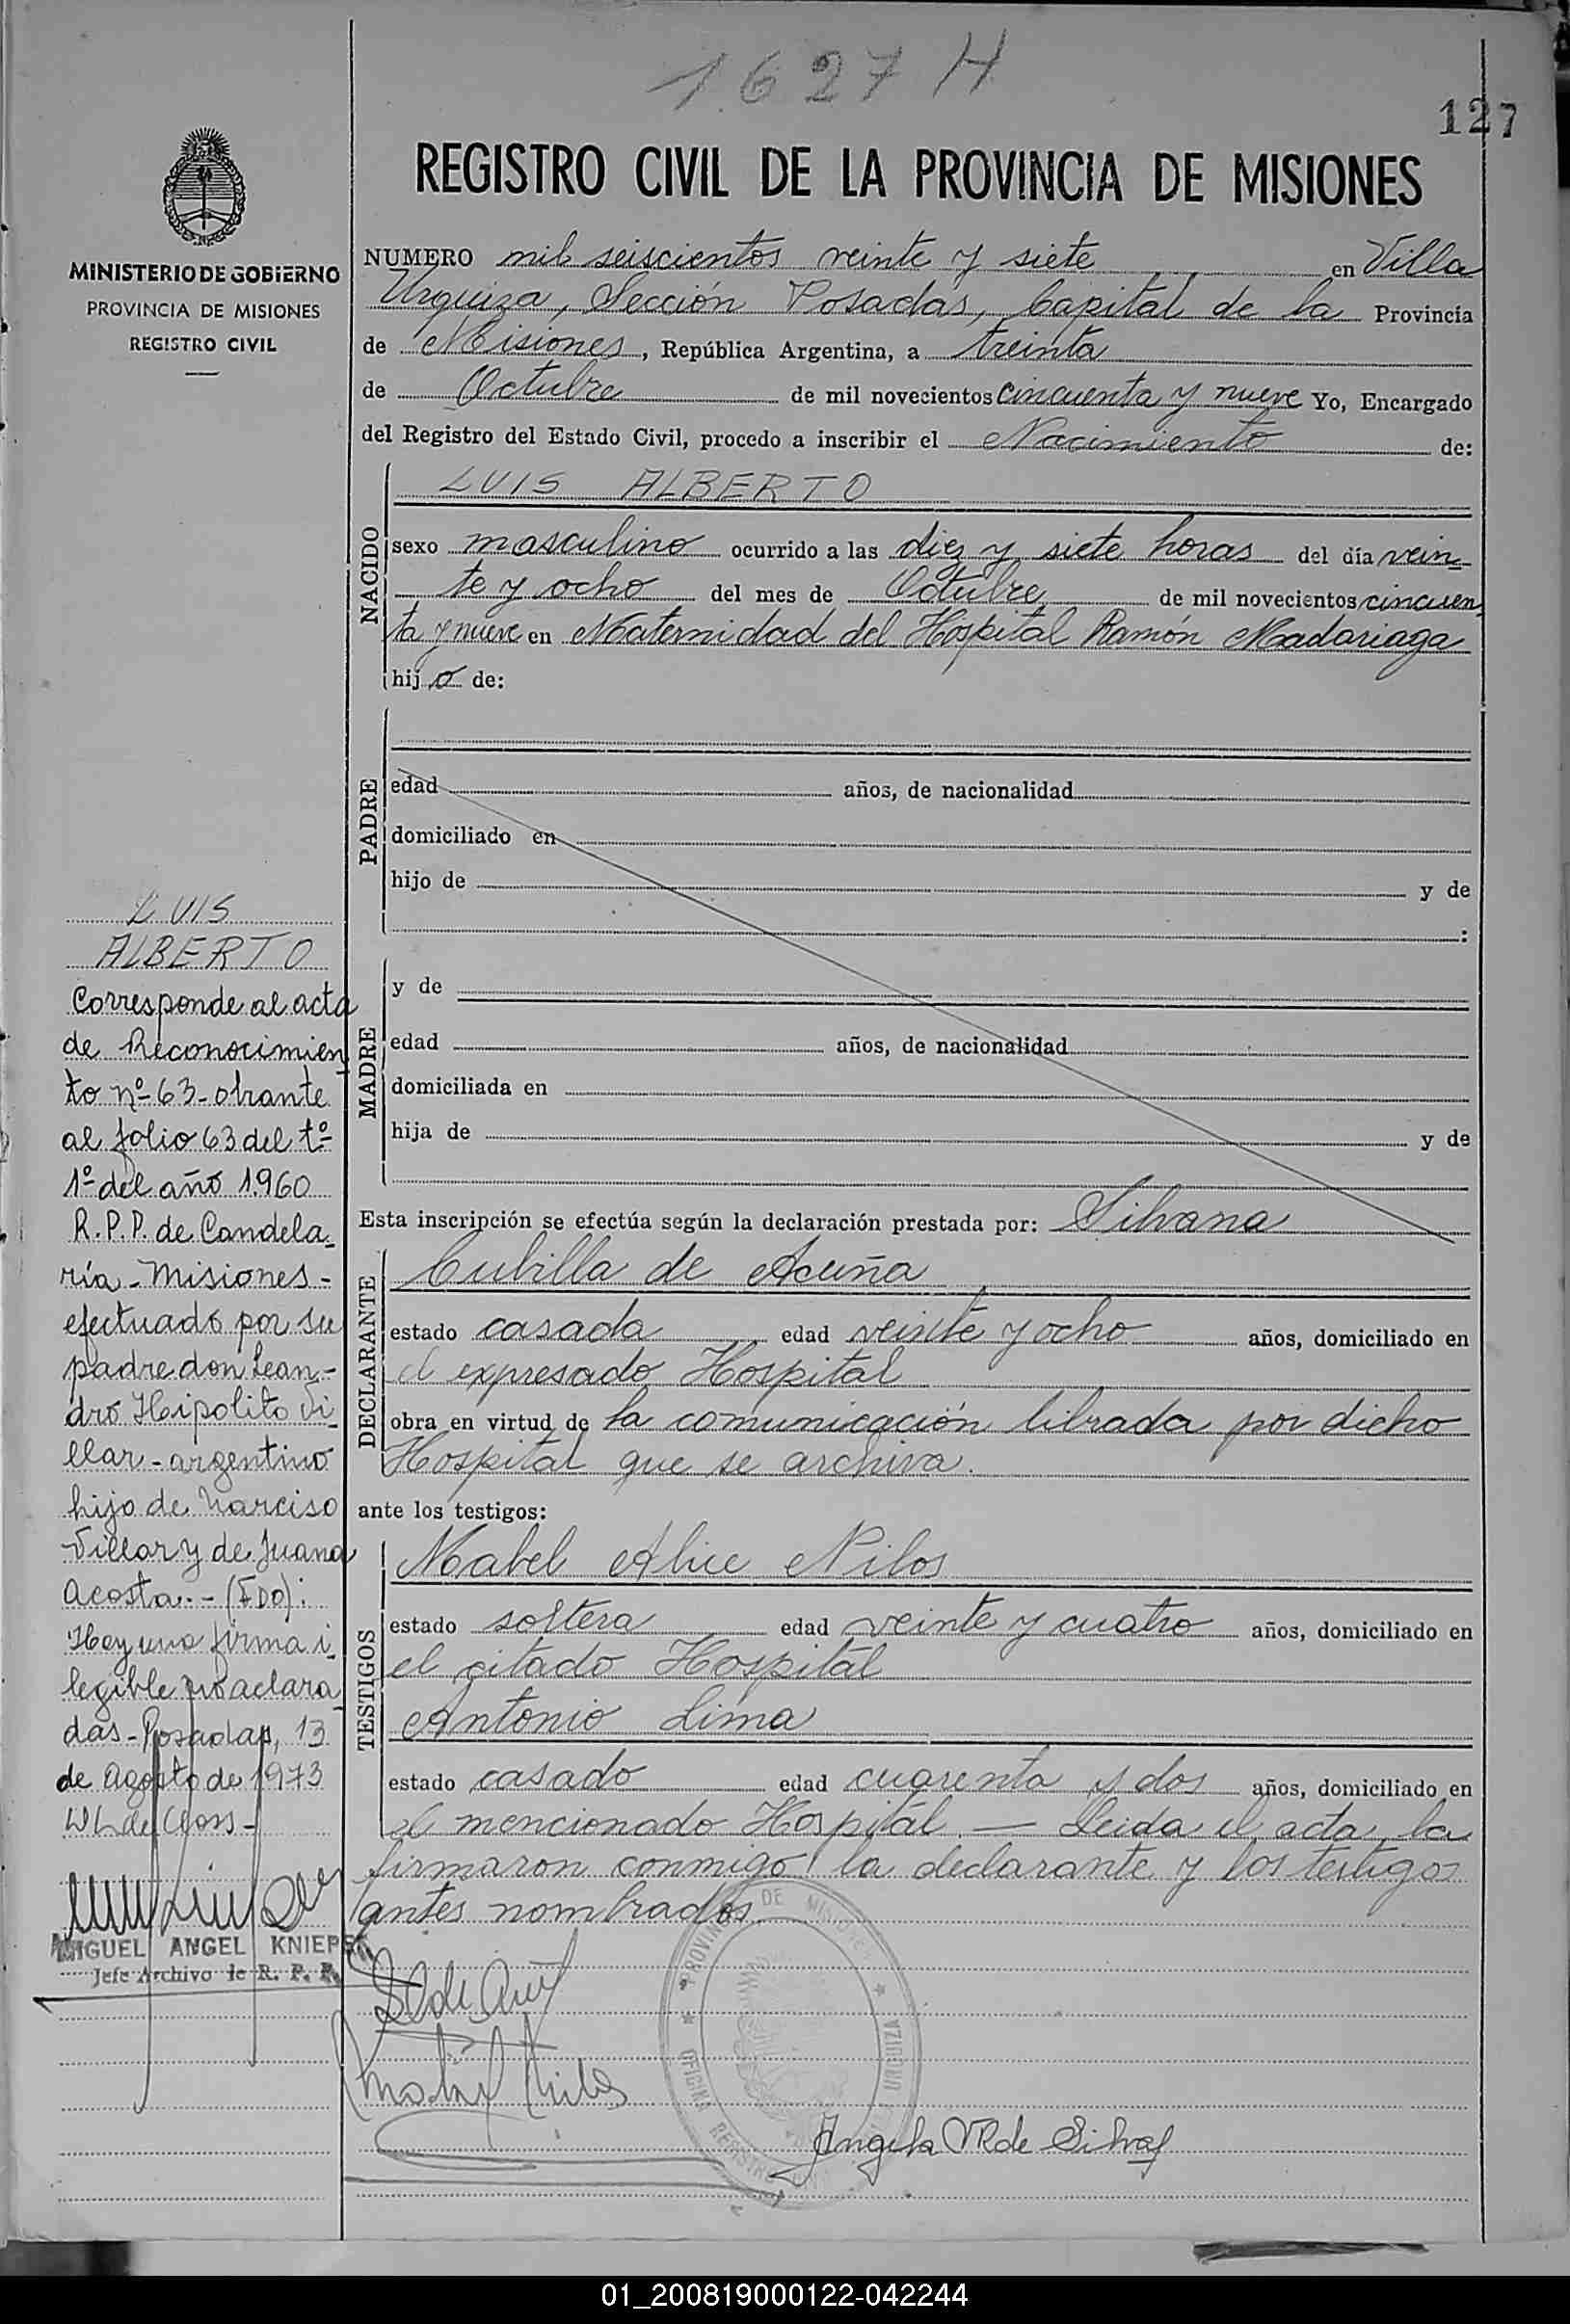 1627 H
127
REGISTRO CIVIL DE LA PROVINCIA DE MISIONES
MINISTERIO DE GOBIERNO
PROVINCIA DE MISIONES
REGISTRO CIVIL
NUMERO mil seiscientos veinte y siete en Villa
Urquiza, Sección Posadas, Capital de la Provincia
de Misiones, República Argentina, a treinta
de Octubre de mil novecientos cincuenta y nueve Yo, Encargado
del Registro del Estado Civil, procedo a inscribir el Nacimiento de:
NACIDO
LUIS ALBERTO
sexo masculino ocurrido a las diez y siete horas del día vein
te y ocho del mes de Octubre de mil novecientos cincuen
ta y nueve en Maternidad del Hospital Ramón Madariaga
hijo de:
PADRE
edad años, de nacionalidad
domiciliado en
hijo de y de
:
MADRE
y de
edad años, de nacionalidad
domiciliada en
hija de y de
Esta inscripción se efectúa según la declaración prestada por: Silvana
DECLARANTE
Cubilla de Acuña
estado casada edad veinte y ocho años, domiciliado en
el expresado Hospital
obra en virtud de la comunicación librada por dicho
Hospital que se archiva.
ante los testigos:
TESTIGOS
Mabel Alice Nilos
estado soltera edad veinte y cuatro años, domiciliado en
el citado Hospital
Antonio Lima
estado casado edad cuarenta y dos años, domiciliado en
el mencionado Hospital — Leida el acta, la
firmaron conmigo la declarante y los testigos
antes nombrados.
LUIS
ALBERTO
Corresponde al acta
de Reconocimien
to nº 63 - obrante
al folio 63 del tº
1º del año 1960
R.P.P. de Candela
ria - Misiones -
efectuado por su
padre don Lean-
dro Hipolito Vi
llar - argentino
hijo de Narciso
Villar y de Juana
Acosta. - (FDO):
Hay una firma i
legible no aclara
das - Posadas, 13
de Agosto de 1973
MIGUEL ANGEL KNIEPER
Jefe Archivo de R. P. P.
PROVINCIA DE MISIONES
OFICINA REGISTRO
URQUIZA
Angela V. de Silva
01_200819000122-042244